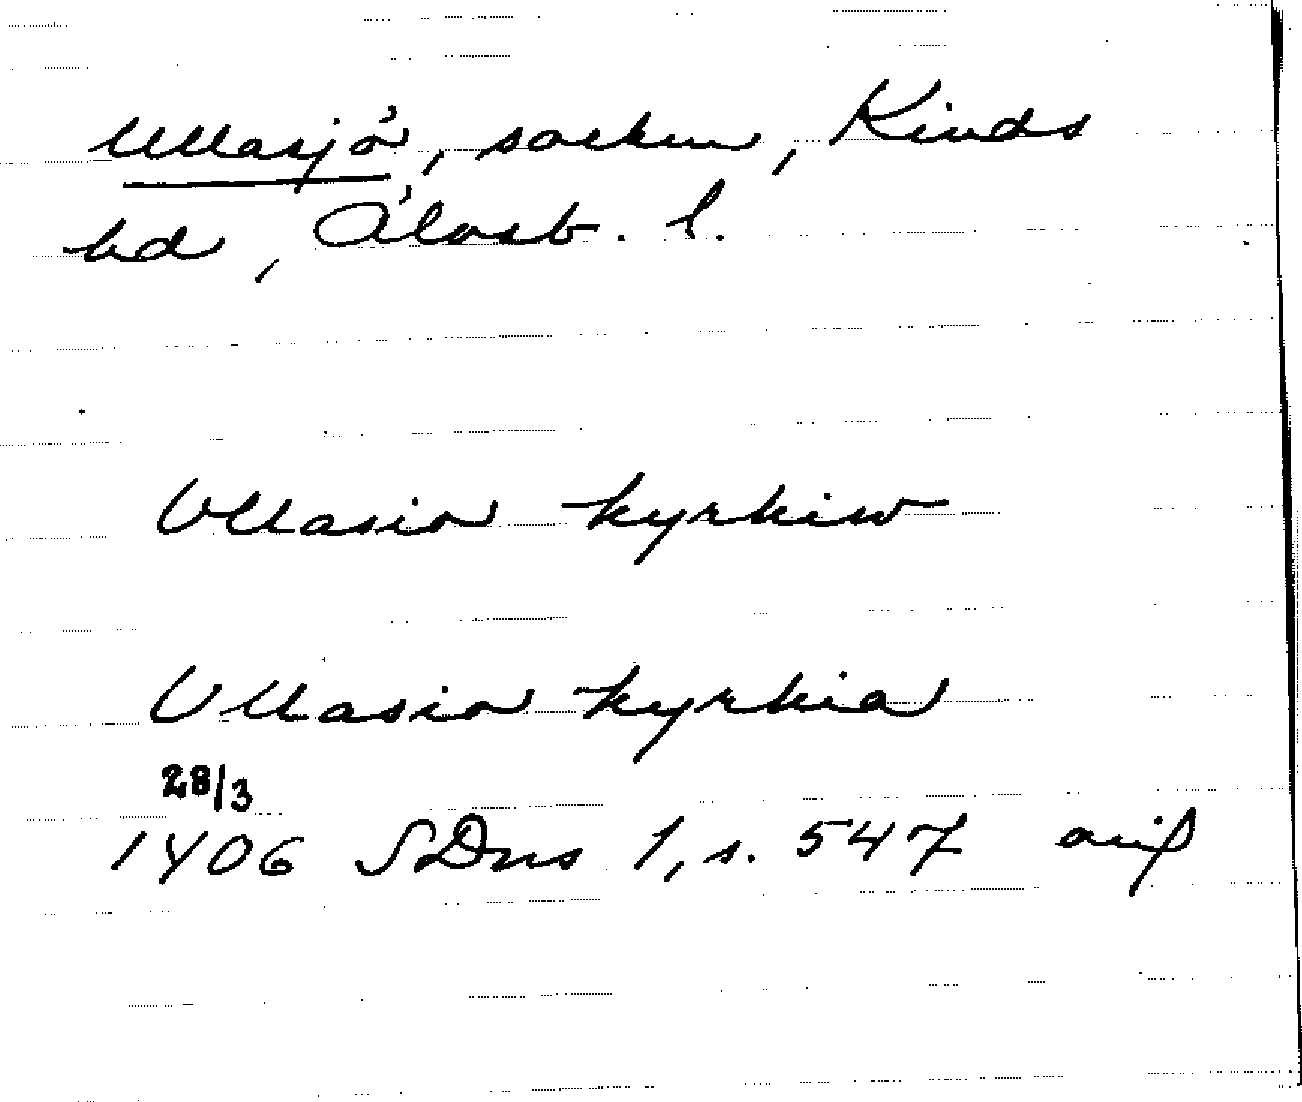 Ullasjö, socken, Kinds
hd, Älvsb. l.
Vllasio kyrkiw
Vllasio kyrkia
28/3
1406 SDns 1, s. 547 avs